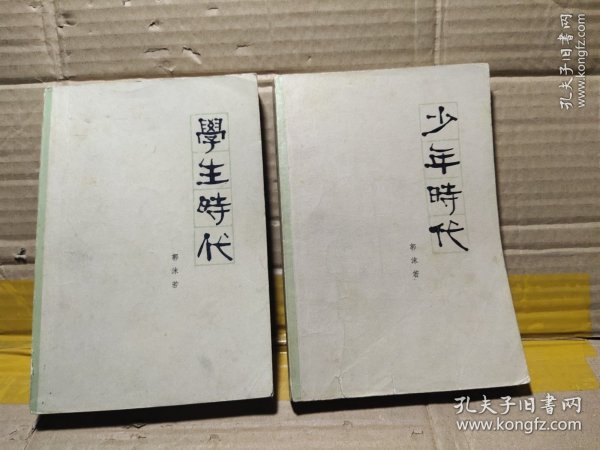 學生時代
郭沫若
少年時代
郭沫若
孔夫子旧书网
kongfz.com
孔夫子旧书网
www.kongfz.com